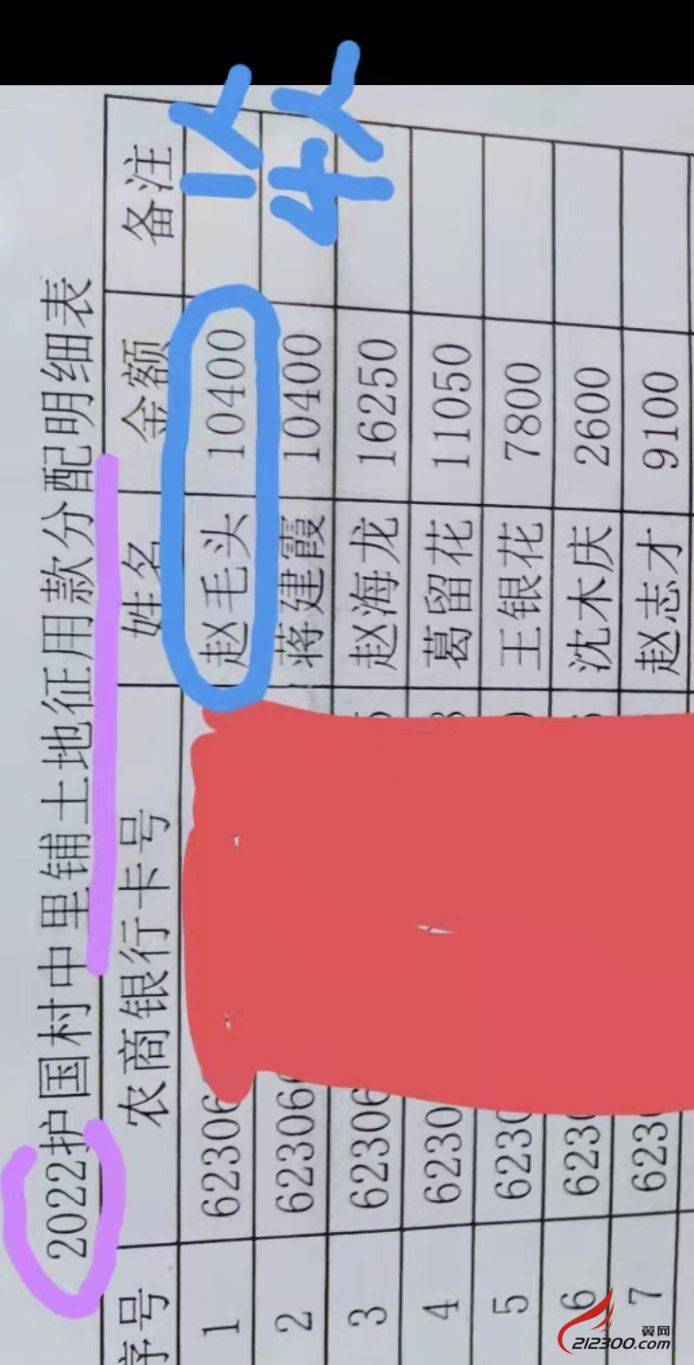 2022护国村中里铺土地征用款分配明细表
序号 农商银行卡号 姓名 金额 备注
1 62306 赵毛头 10400 1人
2 62306 蒋建霞 10400 4人
3 62306 赵海龙 16250
4 6230 葛留花 11050
5 6230 王银花 7800
6 6230 沈木庆 2600
7 6230 赵志才 9100
翼网
212300.com